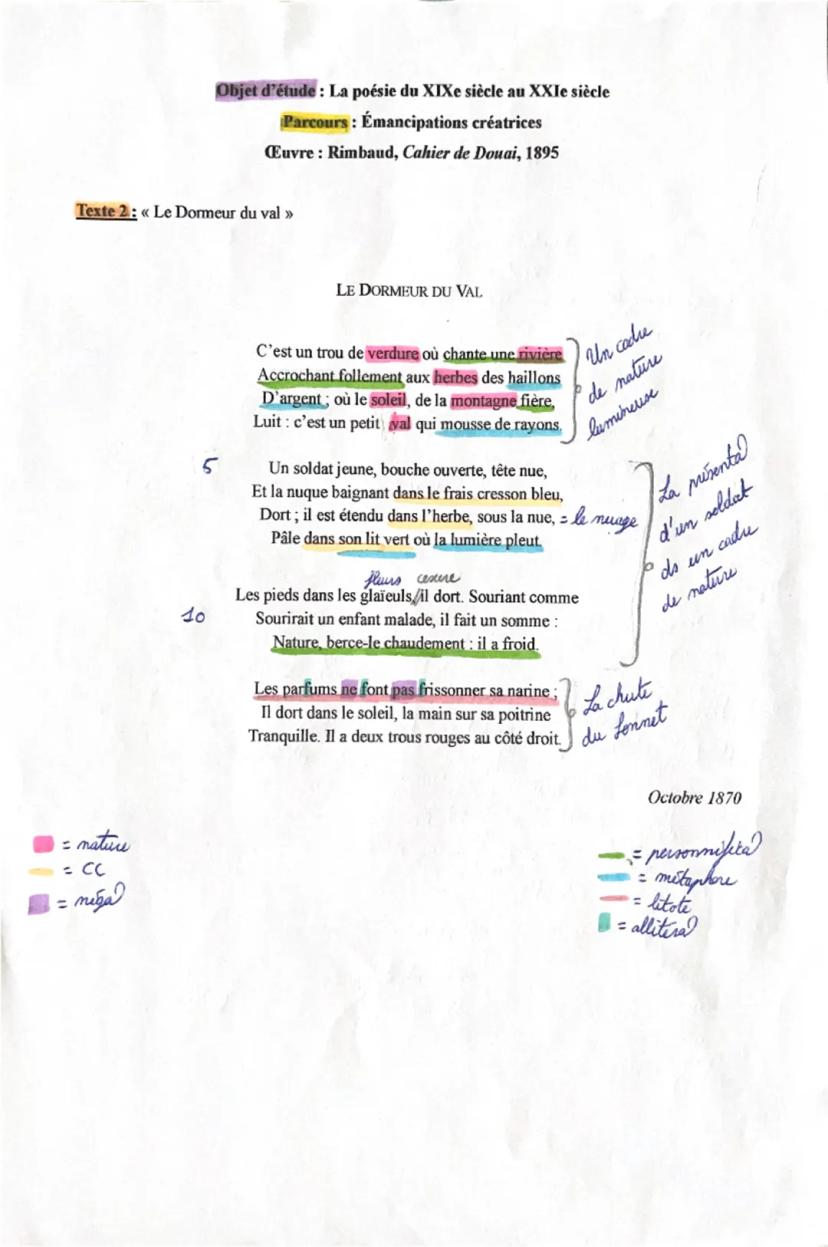 Objet d'étude : La poésie du XIXe siècle au XXIe siècle
Parcours : Émancipations créatrices
Œuvre : Rimbaud, Cahier de Douai, 1895
Texte 2 : « Le Dormeur du val »
LE DORMEUR DU VAL
C'est un trou de verdure où chante une rivière
Accrochant follement aux herbes des haillons
D'argent ; où le soleil, de la montagne fière,
Luit : c'est un petit val qui mousse de rayons.
Un cadre
de nature
lumineuse
5
Un soldat jeune, bouche ouverte, tête nue,
Et la nuque baignant dans le frais cresson bleu,
Dort ; il est étendu dans l'herbe, sous la nue, = le nuage
Pâle dans son lit vert où la lumière pleut.
La présenta°
d'un soldat
ds un cadre
de nature
fleurs cesure
Les pieds dans les glaïeuls,//il dort. Souriant comme
10
Sourirait un enfant malade, il fait un somme :
Nature, berce-le chaudement : il a froid.
Les parfums ne font pas frissonner sa narine ;
Il dort dans le soleil, la main sur sa poitrine
Tranquille. Il a deux trous rouges au côté droit.
La chute
du sonnet
Octobre 1870
= nature
= CC
= néga°
= personnifica°
= métaphore
= litote
= allitéra°